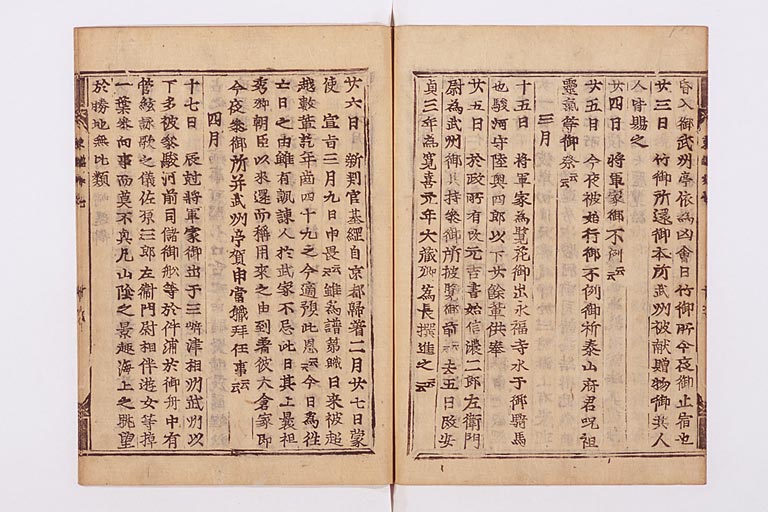 昏入御武州亭依為凶會日行御所今夜御止宿也
廿三日 行御所還御本所武州被献贈物御共人
人皆賜之
廿四日 將軍家御不例云云
廿五日 今夜被始行御不例御祈泰山府君呪詛
靈氣等御祭云云
三月
十五日 將軍家為覧花御出永福寺水干御騎馬
也駿河守陸奥四郎以下廿餘輩供奉
廿五日 於政所有改元吉書始信濃二郎左衛門
尉為武州御共持參御所被覧御前云云去五日改安
貞三年為寛喜元年大藏卿為長撰進之云云
廿六日 新判官基綱自京都歸著二月廿七日蒙
使 宣旨三月九日申畏云云雖為譜第職日来被超
越數輩訖年齒四十九之今適預此恩云云今日為徃
亡日之由雖有諷諌人於武家不忌此日其上曩祖
秀郷朝臣以来還而稱用来之由到著彼大倉家即
今夜參御所并武州亭賀申當職拜任事云云
四月
十七日 辰尅將軍家御出于三﨑津相州武州以
下多被參駿河前司儲御舩等於件浦於御舟中有
管絃詠歌之儀佐原三郎左衛門尉相伴遊女等棹
一葉參向事而莫不興凡山陰之景趣海上之眺望
於勝地無比類